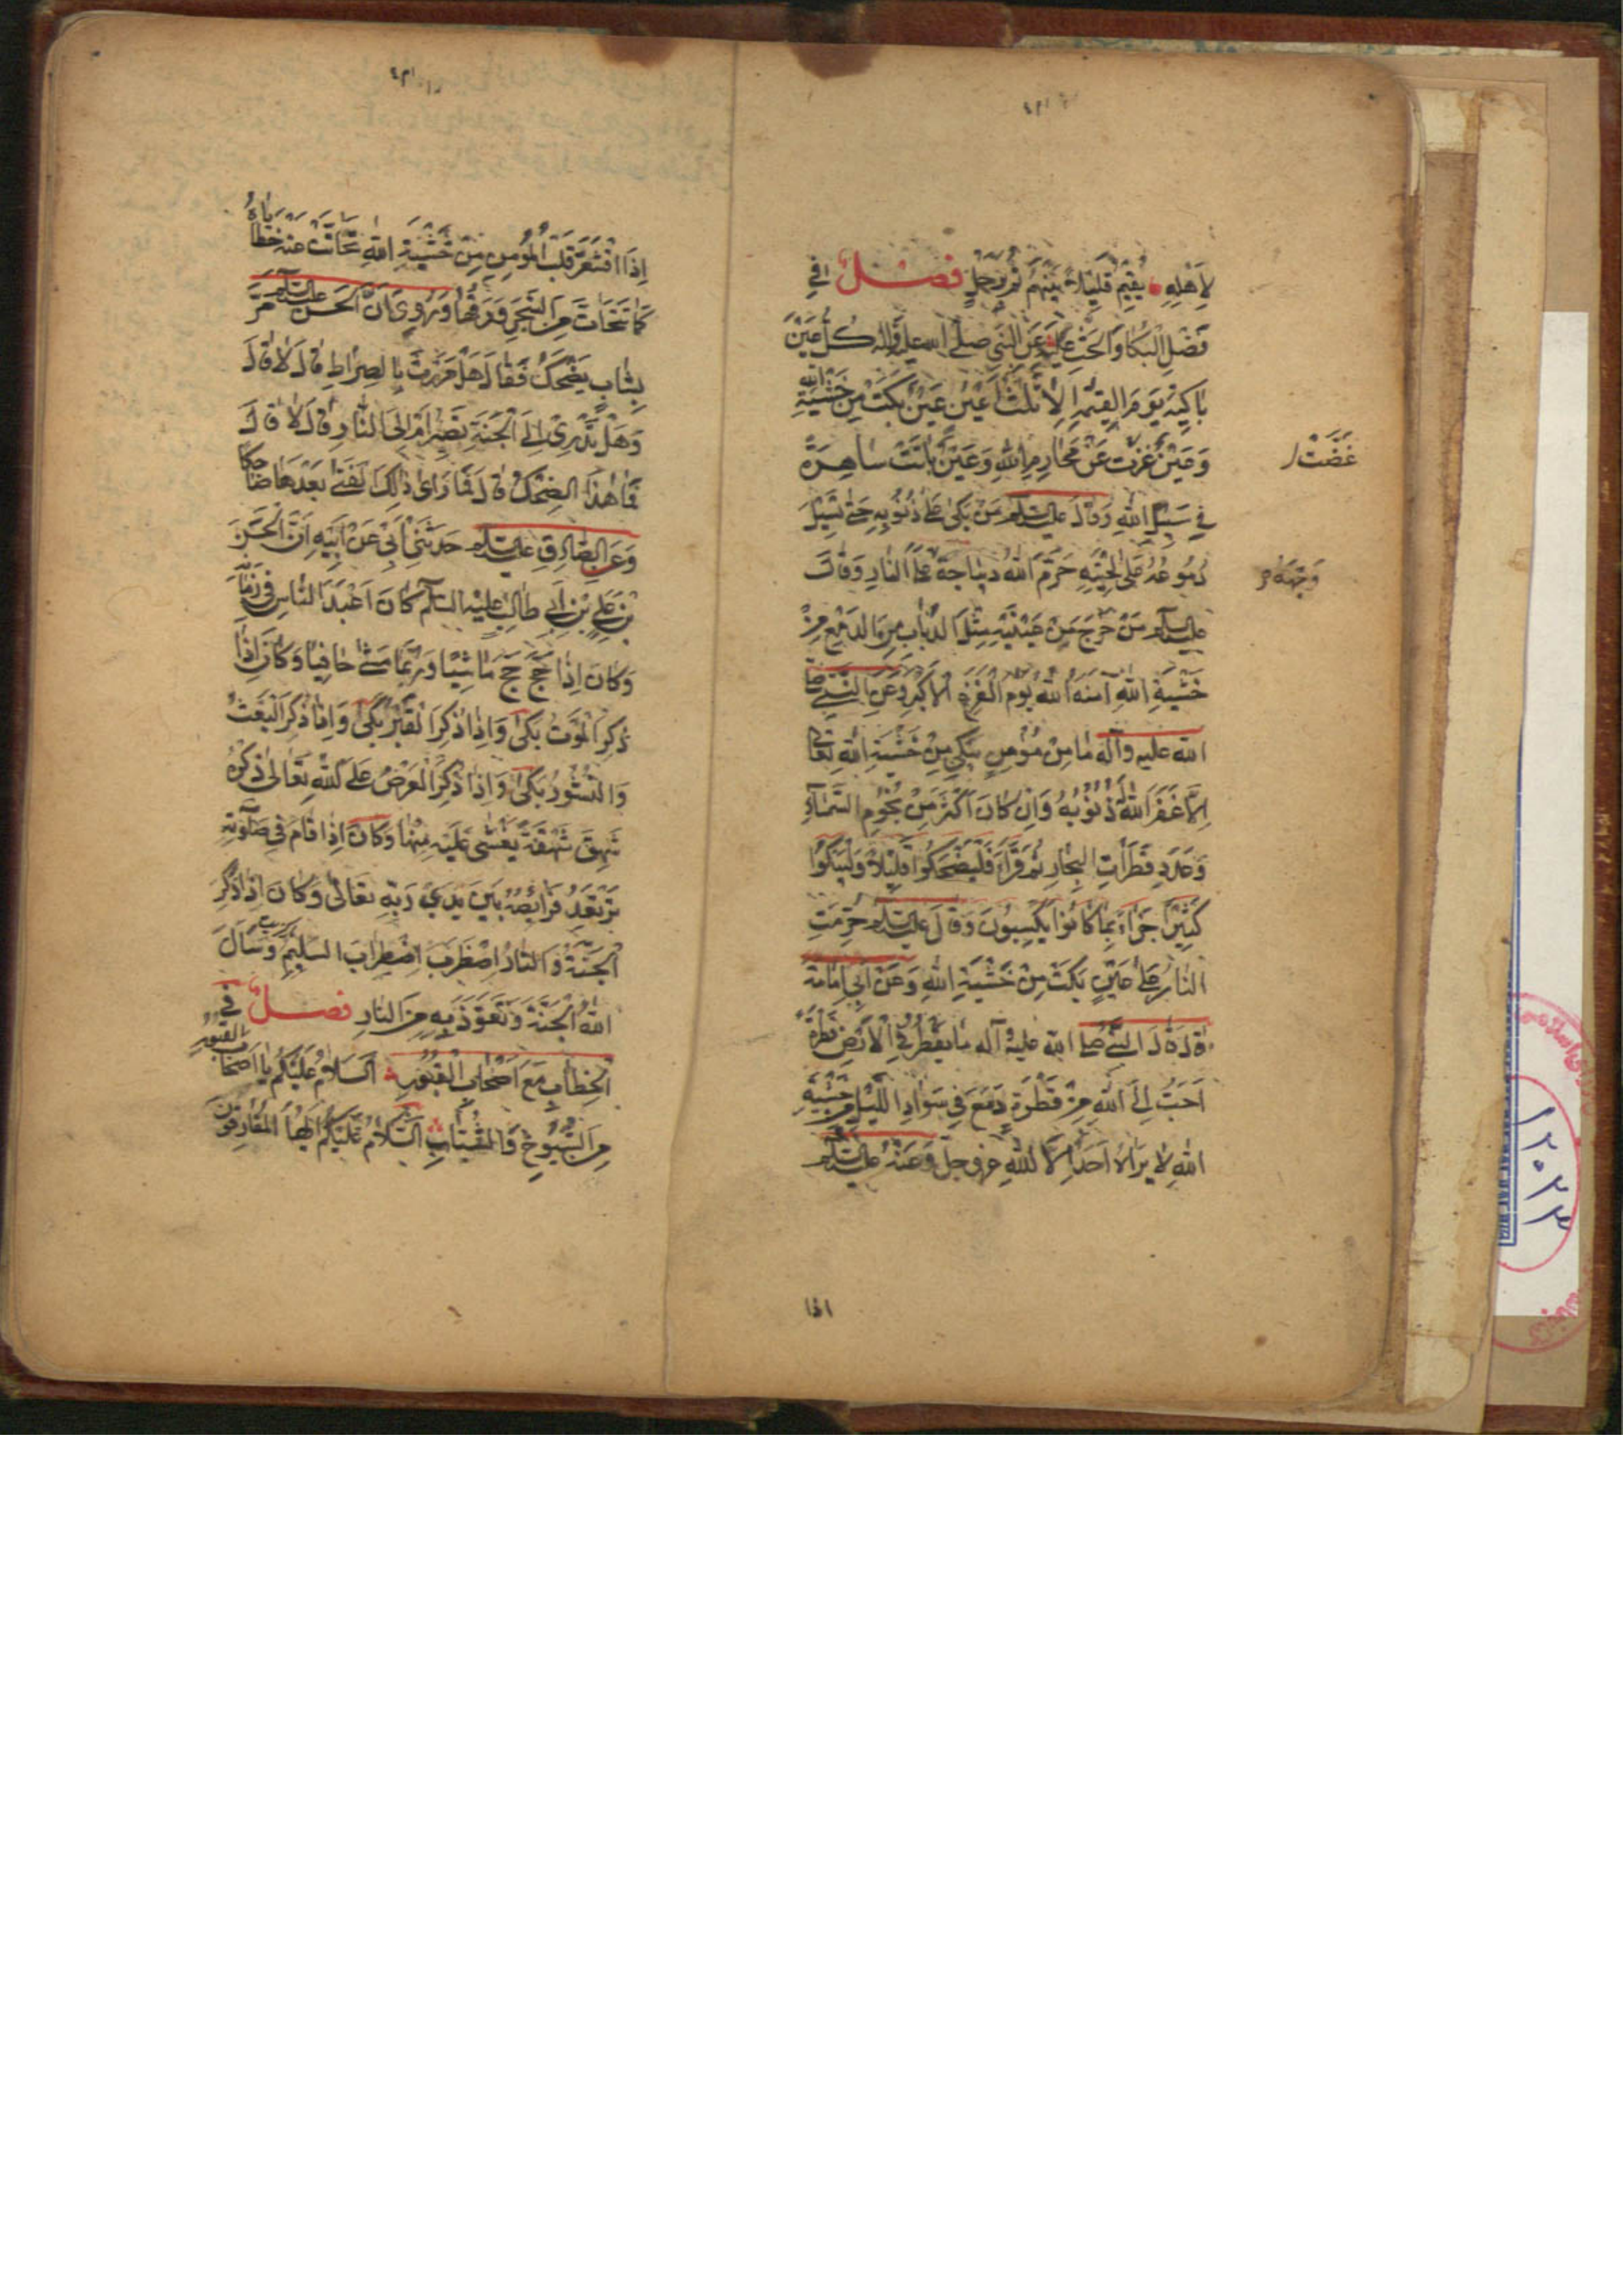 لِاَهْلِهِ يُقِيمُ قَلِيلاً بَيْنَهُمْ ثُمَّ يَرْحَلُ فصل في
فَضْلِ الْبُكَاءِ وَالْحَثِّ عَلَيْهِ عَنِ النَّبِي صلى الله عليه وآله كُلُّ عَيْنٍ
بَاكِيَةٌ يَوْمَ الْقِيٰمَةِ اِلَّا ثَلٰثَ اَعْيُنٍ عَيْنٌ بَكَتْ مِنْ خَشْيَةِ الله
وَعَيْنٌ غُضَّتْ عَنْ مَحَارِمِ اللهِ وَعَيْنٌ بَاتَتْ سَاهِرَةً
غَضَّتْ
فِي سَبِيلِ اللهِ وَقَالَ عليه السلام مَنْ بَكٰى عَلٰى ذُنُوبِهِ حَتّٰى تَسِيلَ
دُمُوعُهُ عَلٰى لِحْيَتِهِ حَرَّمَ اللهُ دِيبَاجَةَ عَلَى النَّارِ وَقَالَ
وَجْهِهِ
عليه السلام مَنْ خَرَجَ مِنْ عَيْنَيْهِ مِثْلُ الذُّبَابِ مِنَ الدَّمْعِ مِنْ
خَشْيَةِ اللهِ آمَنَهُ اللهُ يَوْمَ الْفَزَعِ الْاَكْبَرِ وَعَنِ النَّبِيِّ صلى
الله عليه وآله مَا مِنْ مُؤْمِنٍ يَبْكِي مِنْ خَشْيَةِ اللهِ تَعَالٰى
اِلَّا غَفَرَ اللهُ ذُنُوبَهُ وَاِنْ كَانَ اَكْثَرَ مِنْ نُجُومِ السَّمَاءِ
وَعَدَدِ قَطَرَاتِ الْبِحَارِ ثُمَّ قَرَأَ فَلْيَضْحَكُوا قَلِيلاً وَلْيَبْكُوا
كَثِيرًا جَزَاءً بِمَا كَانُوا يَكْسِبُونَ وَقَالَ عليه السلام حُرِّمَتِ
النَّارُ عَلٰى عَيْنٍ بَكَتْ مِنْ خَشْيَةِ اللهِ وَعَنْ اَبِي اُمَامَةَ
قَالَ قَالَ النبي صلى الله عليه وآله مَا يَقْطُرُ فِي الْاَرْضِ قَطْرَةٌ
اَحَبُّ اِلَى اللهِ مِنْ قَطْرَةِ دَمْعٍ فِي سَوَادِ اللَّيْلِ مِنْ خَشْيَةِ
اللهِ لَا يَرَاهُ اَحَدٌ اِلَّا اللهُ عز وجل وَعَنْهُ عليه السلام
اذا
اِذَا اقْشَعَرَّ قَلْبُ الْمُؤْمِنِ مِنْ خَشْيَةِ اللهِ تَحَاتَّتْ عَنْهُ خَطَايَاهُ
كَمَا تَتَحَاتُّ مِنَ الشَّجَرِ وَرَقُهَا وَرُوِيَ اَنَّ الْحَسَنَ عليه السلام مَرَّ
بِشَابٍّ يَضْحَكُ فَقَالَ هَلْ مَرَرْتَ بِالصِّرَاطِ قَالَ لَا قَالَ
وَهَلْ تَدْرِي اِلَى الْجَنَّةِ تَصِيرُ اَمْ اِلَى النَّارِ قَالَ لَا قَالَ
فَمَا هٰذَا الضِّحْكُ قَالَ فَمَا رَاى ذٰلِكَ الْفَتٰى بَعْدَهَا ضَاحِكًا
وَعَنِ الصَّادِقِ عليه السلام حَدَّثَنِي اَبِي عَنْ اَبِيهِ اَنَّ الْحَسَنَ
بْنَ عَلِيِّ بْنِ اَبِي طَالِبٍ عليه السلام كَانَ اَعْبَدَ النَّاسِ فِي زَمَانِهِ
وَكَانَ اِذَا حَجَّ حَجَّ مَاشِيًا وَرُبَّمَا مَشٰى حَافِيًا وَكَانَ اِذَا
ذَكَرَ الْمَوْتَ بَكٰى وَاِذَا ذَكَرَ الْقَبْرَ بَكٰى وَاِذَا ذَكَرَ الْبَعْثَ
وَالنُّشُورَ بَكٰى وَاِذَا ذَكَرَ الْعَرْضَ عَلَى اللهِ تَعَالٰى ذِكْرُهُ
شَهِقَ شَهْقَةً يُغْشٰى عَلَيْهِ مِنْهَا وَكَانَ اِذَا قَامَ فِي صَلَوتِهِ
تَرْتَعِدُ فَرَائِصُهُ بَيْنَ يَدَيْ رَبِّهِ تَعَالٰى وَكَانَ اِذَا ذَكَرَ
الْجَنَّةَ وَالنَّارَ اضْطَرَبَ اضْطِرَابَ السَّلِيمِ وَسَأَلَ
اللهَ الْجَنَّةَ وَتَعَوَّذَ بِهِ مِنَ النَّارِ فصل في
الْخِطَابِ مَعَ اَصْحَابِ الْقُبُورِ اَلسَّلَامُ عَلَيْكُمْ يَا اَصْحَابَ القبور
مِنَ الشُّيُوخِ وَالشَّبَابِ السَّلَامُ عَلَيْكُمْ اَيُّهَا الْمُفَارِقُونَ
١٢٠٢٣